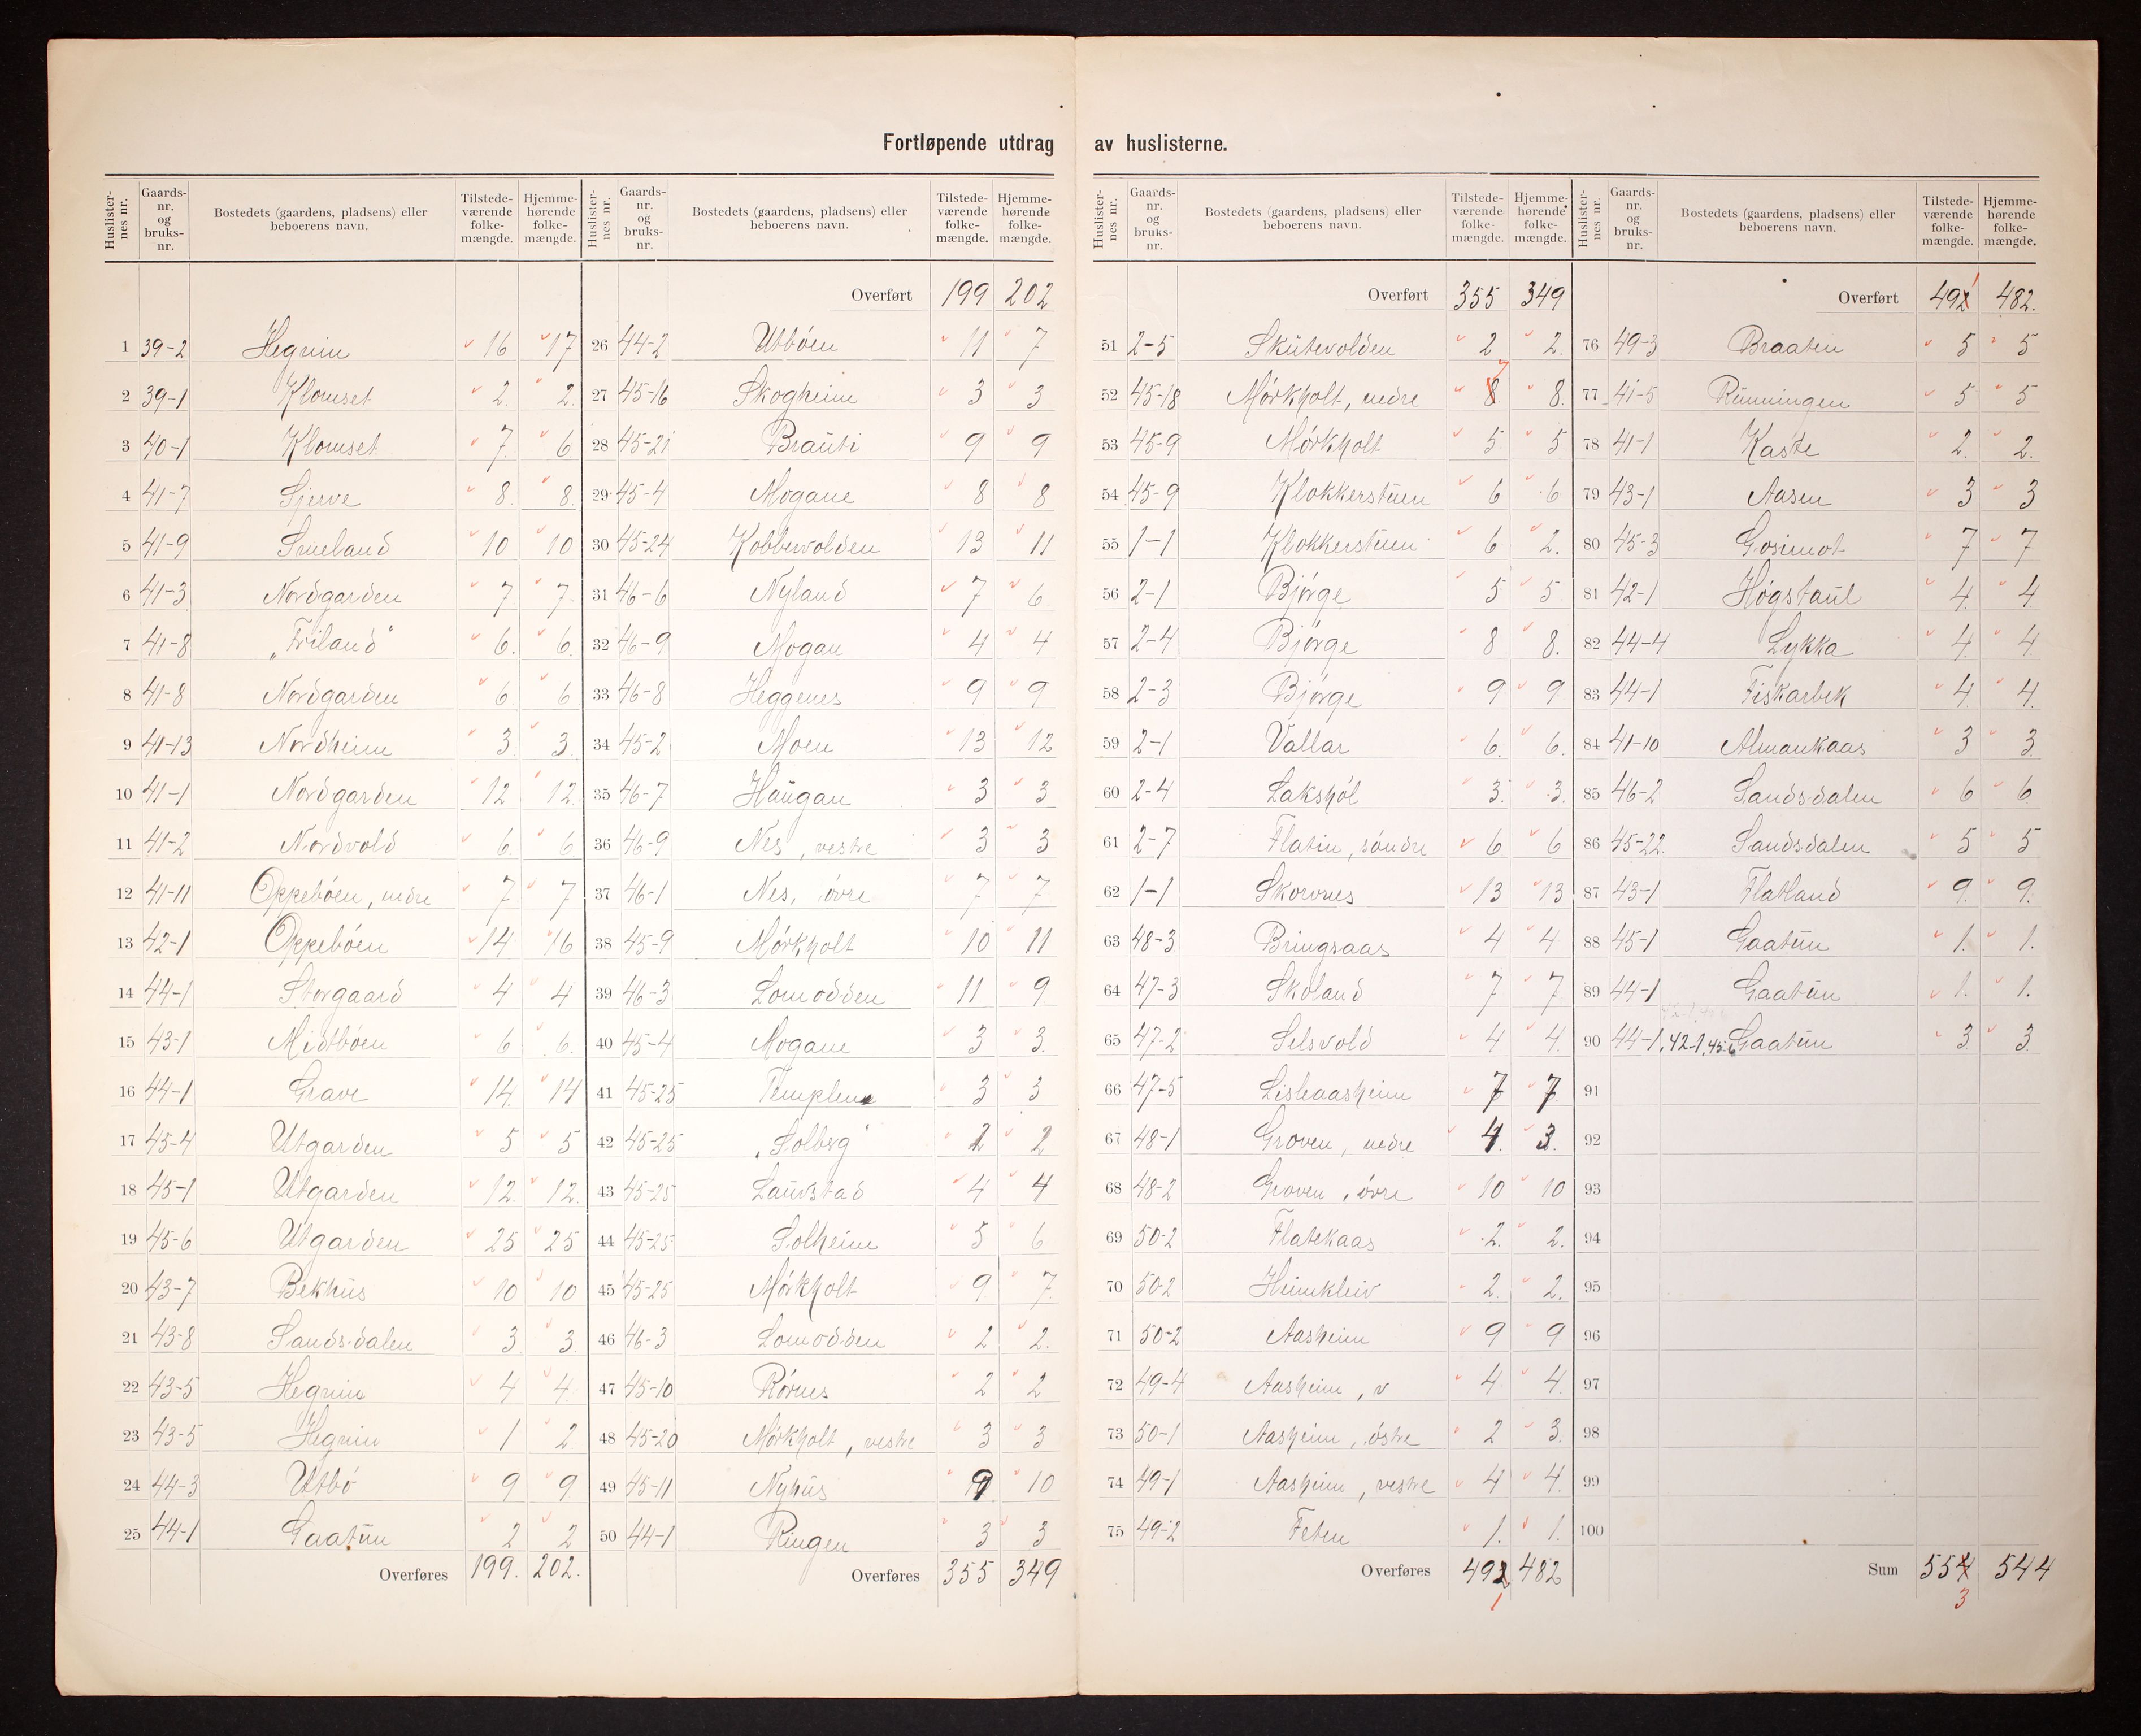 Fortløpende utdrag av huslisterne.
Huslister-nes nr. Gaards-nr. og bruks-nr. Bostedets (gaardens, pladsens) eller beboerens navn. Tilstede-værende folke-mængde. Hjemme-hørende folke-mængde.
1 39-2 Hegrim 16 17
2 39-1 Klomset 2. 2.
3 40-1 Klomset 7. 6
4 41-7 Sjerve 8. 8.
5 41-9 Srueland 10 10
6 41-3 Nordgarden 7 7
7 41-8 „Friland" 6. 6.
8 41-8 Nordgarden 6 6
9 41-13 Nordheim 3. 3.
10 41-1 Nordgarden 12 12
11 41-2 Nordvold 6. 6
12 41-11 Oppebøen, nedre 7 7
13 42-1 Oppebøen 14 16
14 44-1 Storgaard 4 4
15 43-1 Midtbøen 6 6.
16 44-1 Grave 14. 14
17 45-4 Utgarden 5 5
18 45-1 Utgarden 12. 12.
19 45-6 Utgarden 25 25
20 43-7 Bekhus 10 10
21 43-8 Sandsdalen 3. 3.
22 43-5 Hegrim 4 4.
23 43-5 Hegrim 1 2
24 44-3 Utbø 9 9
25 44-1 Gaatun 2 2
Overføres 199. 202.
Huslister-nes nr. Gaards-nr. og bruks-nr. Bostedets (gaardens, pladsens) eller beboerens navn. Tilstede-værende folke-mængde. Hjemme-hørende folke-mængde.
Overført 199 202
26 44-2 Utbøen 11 7
27 45-16 Skogheim 3 3
28 45-21 Brauti 9 9
29 45-4 Mogane 8 8
30 45-24 Kobbervolden 13 11
31 46-6 Nyland 7 6
32 46-9 Mogan 4 4
33 46-8 Heggenes 9 9
34 45-2 Moen 13 12
35 46-7 Haugan 3 3
36 46-9 Nes, vestre 3 3
37 46-1 Nes, øvre 7 7
38 45-9 Mørkholt 10 11
39 46-3 Lomodden 11 9
40 45-4 Mogane 3 3.
41 45-25 Templen 3 3
42 45-25 „Solberg" 2 2
43 45-25 Laurstad 4 4
44 45-25 Solheim 5 6
45 45-25 Mørkholt 9. 7.
46 46-3 Lomodden 2 2.
47 45-10 Rørnes 2 2
48 45-20 Mørkholt, vestre 3 3
49 45-11 Nyhus 9 10
50 44-1 Ringen 3 3
Overføres 355 349
Huslister-nes nr. Gaards-nr. og bruks-nr. Bostedets (gaardens, pladsens) eller beboerens navn. Tilstede-værende folke-mængde. Hjemme-hørende folke-mængde.
Overført 355 349
51 2-5 Skutevolden 2 2.
52 45-18 Mørkholt, nedre 8 7 8.
53 45-9 Mørkholt 5. 5
54 45-9 Klokkerstuen 6 6
55 1-1 Klokkerstuen 6 2.
56 2-1 Bjørge 5 5
57 2-4 Bjørge 8 8.
58 2-3 Bjørge 9 9
59 2-1 Vallar 6. 6.
60 2-4 Lakshøl 3. 3.
61 2-7 Flatin, søndre 6 6
62 1-1 Skorvnes 13 13
63 48-3 Bringsaas 4 4
64 47-3 Skoland 7 7
65 47-2 Selsvold 4 4.
66 47-5 Lisleaasheim 7 7
67 48-1 Groven, nedre 4. 3.
68 48-2 Groven, øvre 10 10
69 50-2 Flatekaas 2. 2.
70 50-2 Heimkleiv 2. 2.
71 50-2 Aasheim 9 9
72 49-4 Aasheim, v 4 4.
73 50-1 Aasheim, østre 2 3.
74 49-1 Aasheim, vestre 4 4.
75 49-2 Feten 1. 1.
Overføres 492 1 482
Huslister-nes nr. Gaards-nr. og bruks-nr. Bostedets (gaardens, pladsens) eller beboerens navn. Tilstede-værende folke-mængde. Hjemme-hørende folke-mængde.
Overført 492 1 482.
76 49-3 Braaten 5 5
77 41-5 Runningen 5 5
78 41-1 Kaste 2. 2.
79 43-1 Aasen 3 3
80 45-3 Gosimot 7 7
81 42-1 Høgstaul 4. 4.
82 44-4 Lykka 4. 4.
83 44-1 Fiskarbek 4. 4.
84 41-10 Almankaas 3 3.
85 46-2 Sandsdalen 6 6
86 45-22 Sandsdalen 5 5
87 43-1 Flatland 9. 9.
88 45-1 Gaatun 1. 1.
89 44-1 Gaatun 1. 1.
90 44-1, 42-1, 45-6 Gaatun 3 3.
91
92
93
94
95
96
97
98
99
100
Sum 554 3 544